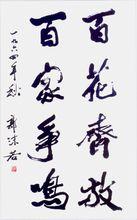 百花齊放
百家爭鳴
一九六四年秋
郭沫若